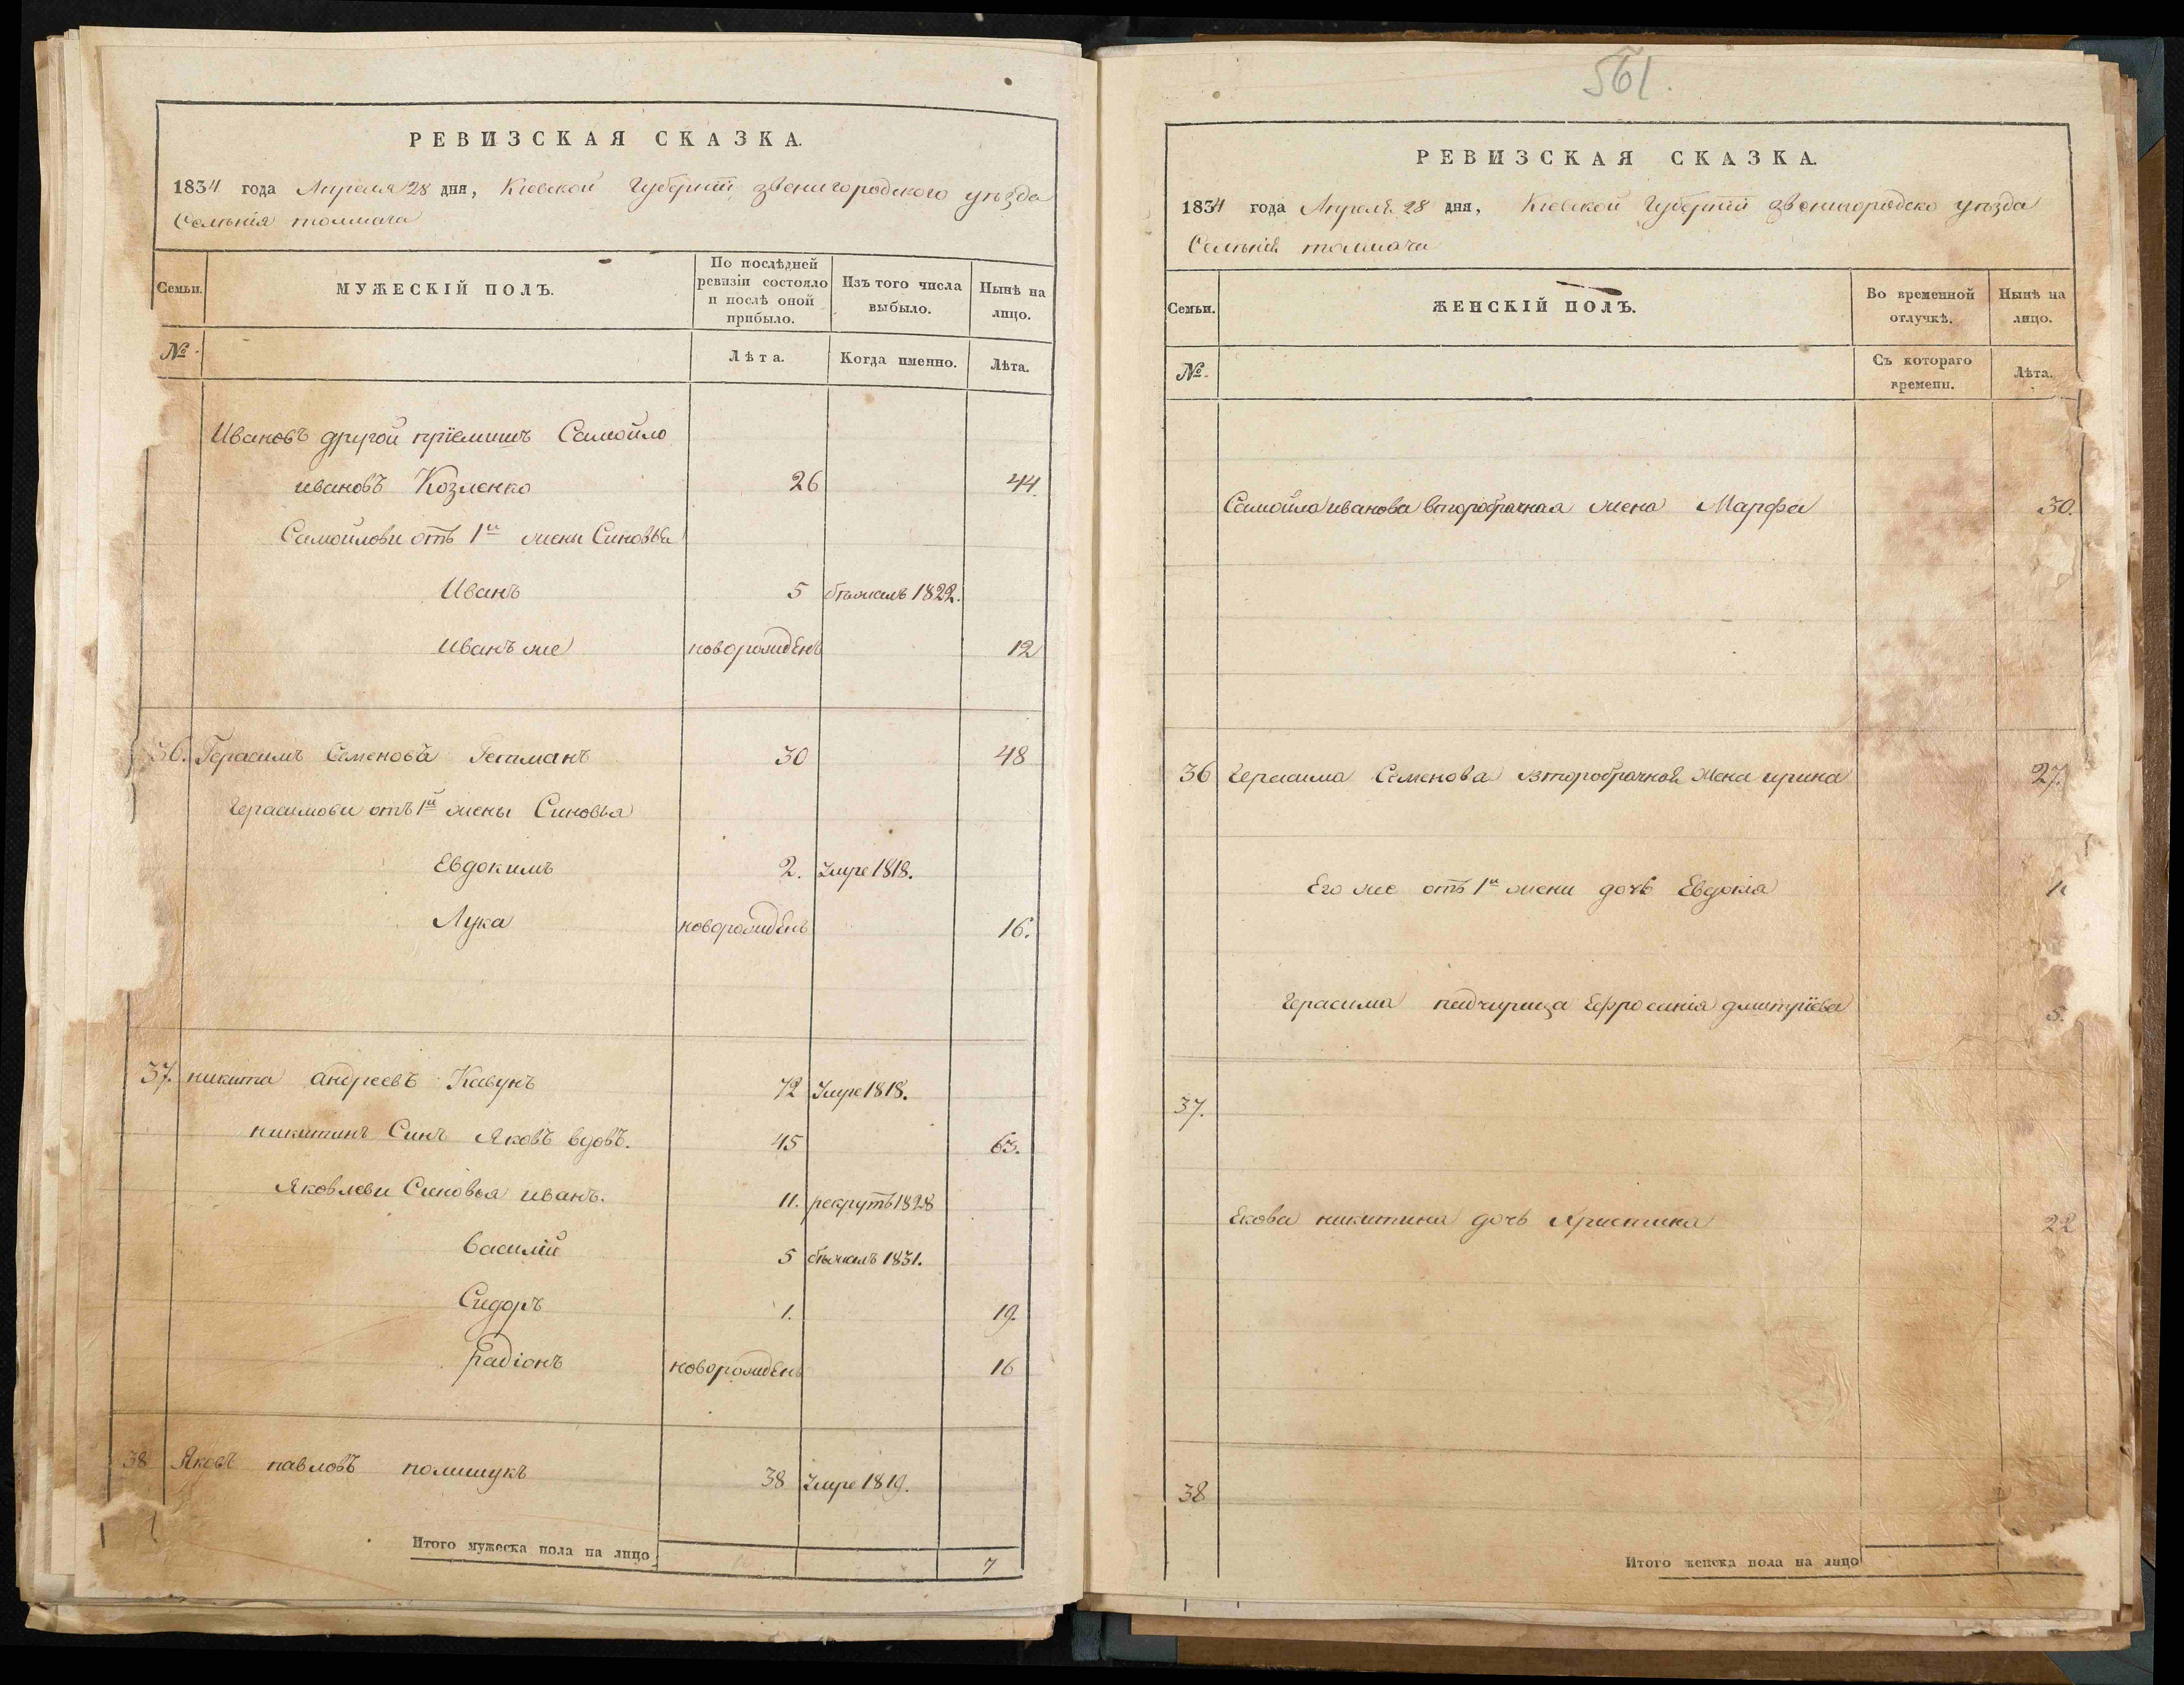 РЕВИЗСКАЯ СКАЗКА.
1834 года Апреля 28 дня, Кіевской Губерніи звенигородского уѣзда
Селѣнія толмача
Семьи.
МУЖЕСКІЙ ПОЛЪ.
По послѣдней ревизіи состояло и послѣ оной прибыло.
Изъ того числа выбыло.
Нынѣ на лицо.
№
Лѣта.
Когда именно.
Лѣта.
Ивановъ другой пріемишъ Самойло
ивановъ Козленко 26 44.
Самойлови отъ 1й жени Синовья
Иванъ 5 бѣжалъ 1822.
Иванъ же новорожденъ 12
36. Герасимъ Семеновъ Гетманъ 30 48
Герасимови отъ 1й жены Синовья
Евдокимъ 2. Умре 1818.
Лука новорожденъ 16.
37. никита андреевъ Кавунъ 72 Умре 1818.
никитинъ Синъ Яковъ вдовъ. 45 63.
Яковлеви Синовья иванъ. 11. рекрутъ 1828
василій 5 бѣжалъ 1831.
Сидоръ 1. 19.
радіонъ новорожденъ 16
38 Яковъ павловъ полишукъ 38 Умре 1819.
Итого мужеска пола на лицо 7
561.
РЕВИЗСКАЯ СКАЗКА.
1834 года Апреля 28 дня, Кіевской Губерніи звенигородско уѣзда
Селѣнія толмача
Семьи.
ЖЕНСКІЙ ПОЛЪ.
Во временной отлучкѣ.
Нынѣ на лицо.
№
Съ котораго времени.
Лѣта.
Самойла иванова второбрачная жена Марфа 30.
36 Герасима Семенова второбрачная Жена ирина 27.
Его же отъ 1й жени дочь Евдокія
Герасима падчирица Ефросинія дмитріева 5.
37.
Якова никитина дочь Христина 22
38
Итого женска пола на лицо